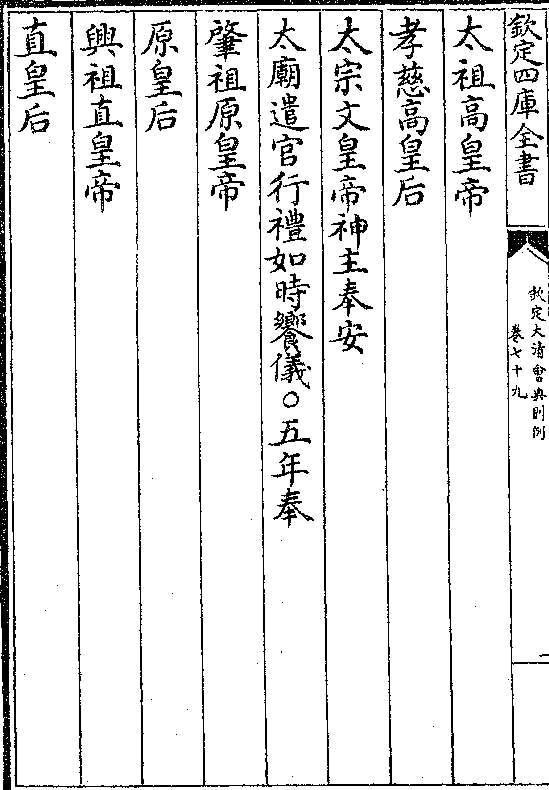 欽定四庫全書
欽定大清會典則例
卷七十九
一
太祖高皇帝
孝慈高皇后
太宗文皇帝神主奉安
太廟遣官行禮如時饗儀○五年奉
肇祖原皇帝
原皇后
興祖直皇帝
直皇后